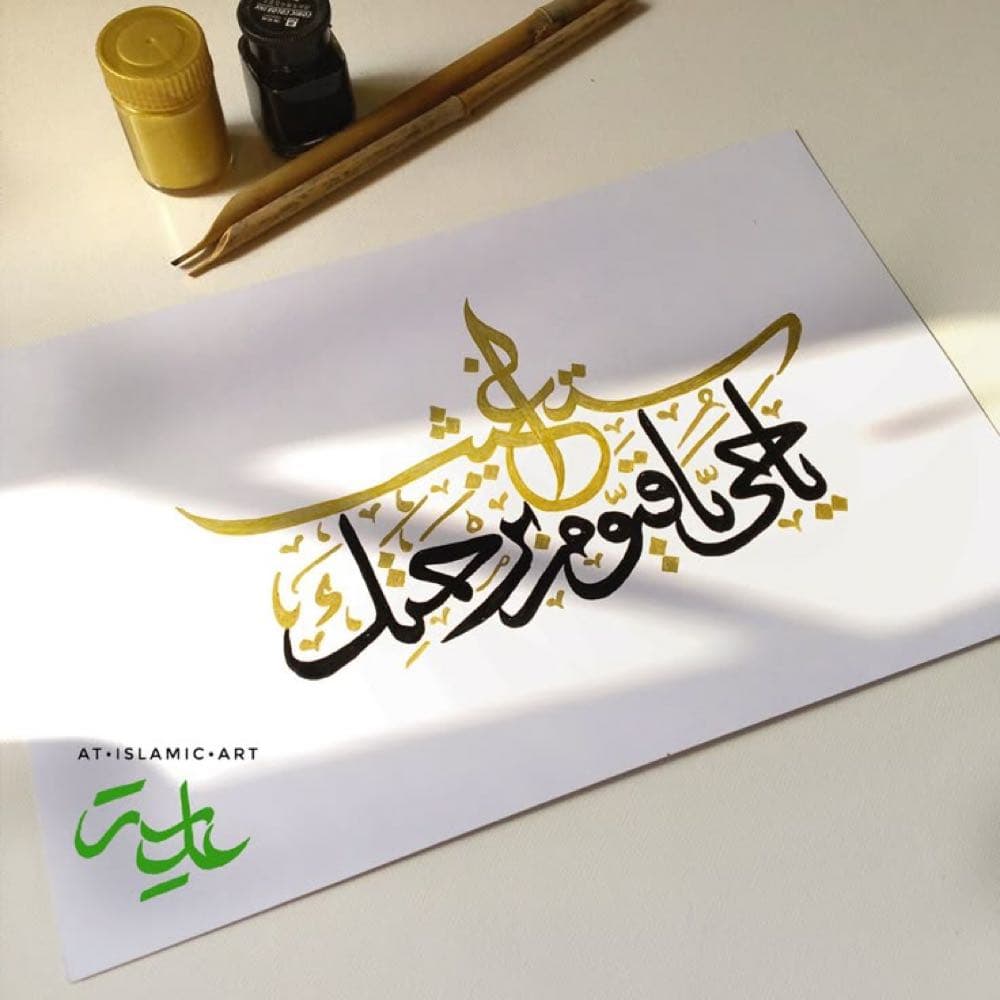 يا حي يا قيوم برحمتك
استغيث
AT•ISLAMIC•ART
عالية